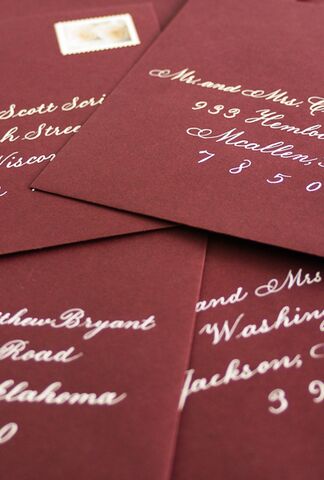 Scott
Wiscon
Mr. and Mrs. C
933 Hemlo
Mcallen,
7 8 5 0
thew Bryant
Road
klahoma
0
and Mrs
Washing
Jackson,
3 9